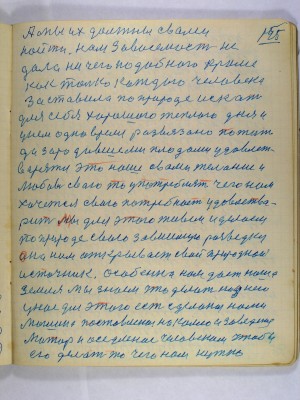 155
А мы их должны с вами
найти, нам зависемость не
дала ничего подобного кроме
как только каждого человека
заставила по природе искат
для себя хорошего теплого дня и
развязано
да зародившеми плодами удовлет-
варяти это наше с вами желание и
любов своего то употреблят чего нам
хочется свою потребност удовлетва-
рит мы для этого живем и делаем
по природе свою завмешную разведку
она нам открывает свой природной
источник. Особенно нам дает наша
земля мы знаем это делат на нею
у нас для этого ест сделаны нами
машина поставлена на колесо и заведеная
матор и веселение человеком чтобы
его делат то чего нам нужно